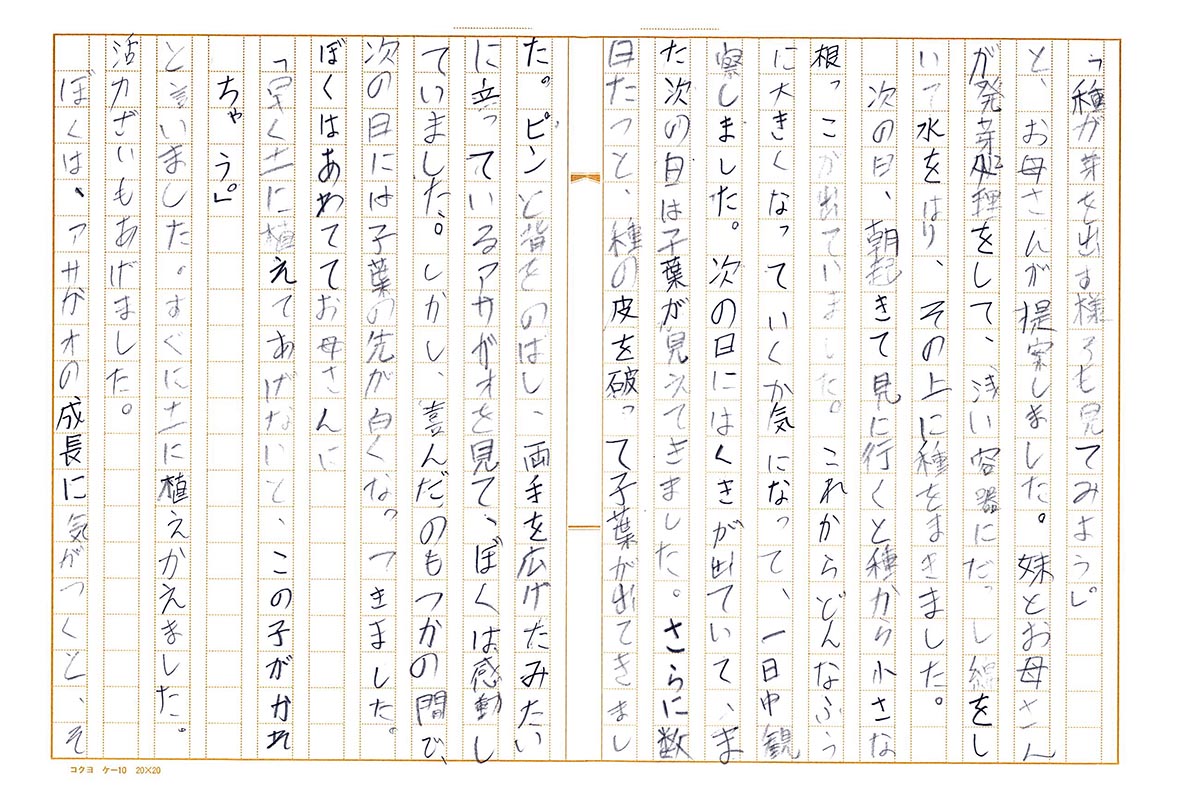 「種が芽を出す様子も見てみよう。」
と、お母さんが提案しました。妹とお母さん
が発芽処理をして、浅い容器にだっし綿をし
いて水をはり、その上に種をまきました。
次の日、朝起きて見に行くと種から小さな
根っこが出ていました。これからどんなふう
に大きくなっていくか気になって、一日中観
察しました。次の日にはくきが出ていて、ま
た次の日は子葉が見えてきました。さらに数
日たつと、種の皮を破って子葉が出てきまし
た。ピンと背をのばし、両手を広げたみたい
に立っているアサガオを見て、ぼくは感動し
ていました。しかし、喜んだのもつかの間で、
次の日には子葉の先が白くなっつきました。
ぼくはあわててお母さんに
「早く土に植えてあげないと、この子がかれ
ちゃう。」
と言いました。すぐに土に植えかえました。
活力ざいもあげました。
ぼくは、アサガオの成長に気がつくと、そ
コクヨ ケー10 20×20